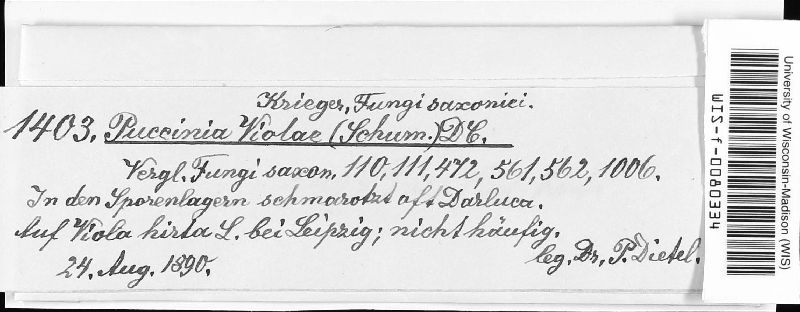 Krieger, Fungi saxonici.
1403. Puccinia Violae (Schum.) DC.
Vergl. Fungi saxon. 110, 111, 472, 561, 562, 1006.
In den Sporenlagern schmarotzt oft Darluca.
Auf Viola hirta L. bei Leipzig; nicht häufig.
24. Aug. 1890.
leg. Dr. P. Dietel.
University of Wisconsin-Madison (WIS)
WIS-f-0080334